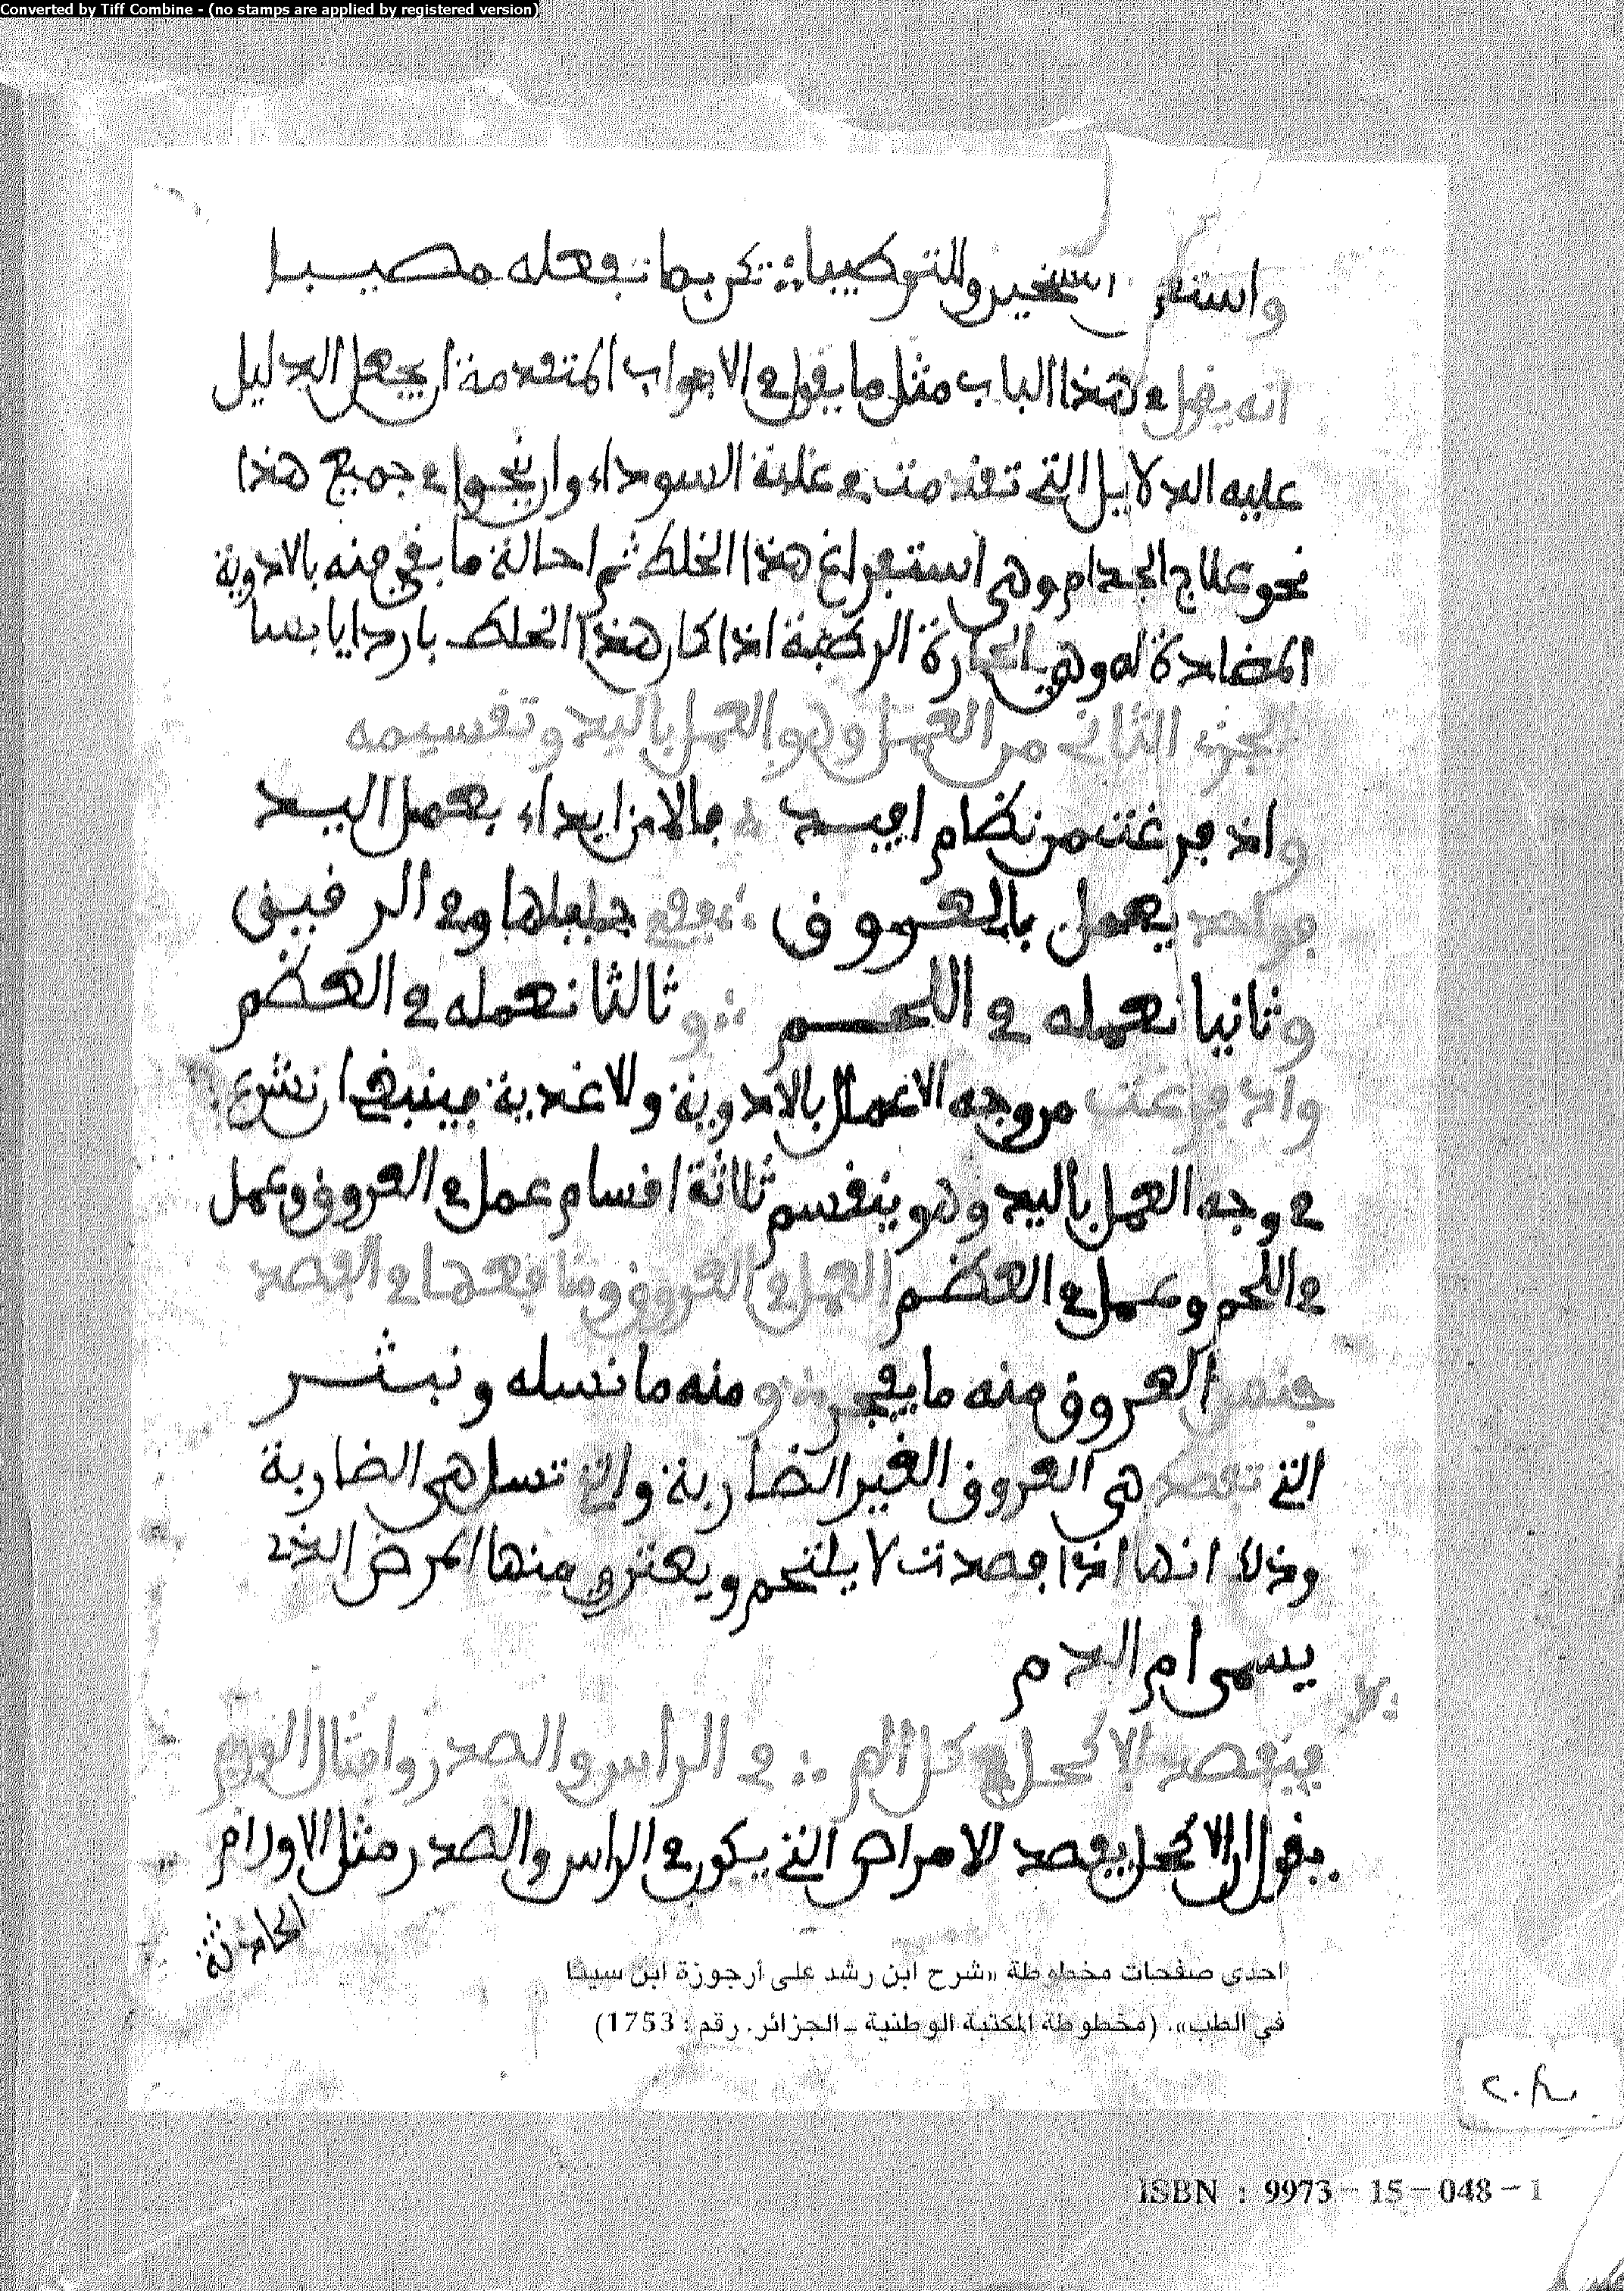 Converted by Tiff Combine - (no stamps are applied by registered version)
واستعمل التسخين والترطيبا ∴ تكن بما تفعله مصيبا
انه يقول في هذا الباب مثل ما يقول في الابواب المتقدمة ان يجعل الدليل
عليه الدلايل التي تقدمت في غلبة السوداء وان ينحوا في جميع هذا
نحو علاج الجذام وهي استفراغ هذا الخلط ثم احالة ما بقي منه بالادوية
المضادة له وهي الحارة الرطبة اذا كان هذا الخلط باردا يابسا
الجزء الثاني من العمل وهو العمل باليد وتقسيمه
واذ فرغت من نظام افيد ∴ فالان ابداء بعمل اليد
فواحد يعمل بالعروق ∴ في جليلها وفي الرقيق
وثانيا نعمله في اللحم ∴ و ثالثا نعمله في العظم
واذ فرغت من وجه الاعمال بالادوية ولاغدية فينبغي ان نشرع
في وجه العمل باليد وهو ينقسم ثلاثة اقسام عمل في العروق وعمل
في اللحم وعمل في العظم العمل في العروق ومنافعها في الفصد
جنس العروق منه ما يفجر ∴ ومنه ما نسله ونبثر
التي تفصد هي العروق الغير الضاربة والتي تسل هي الضاربة
وذلك انها اذا فصدت لا يلتحم ويعتري منها المرض الذي
يسمى ام الدم
فيفصد الاكحل في كل الم ∴ في الراس والصدر وامثال الورم
يقول ان الاكحل يفصد للامراض التي يكون في الراس والصدر مثل الاورام
الحادثة
احدى صفحات مخطوطة «شرح ابن رشد على أرجوزة ابن سينا
في الطب». (مخطوطة المكتبة الوطنية ـ الجزائر. رقم : 1753)
ISBN : 9973 - 15 - 048 - 1